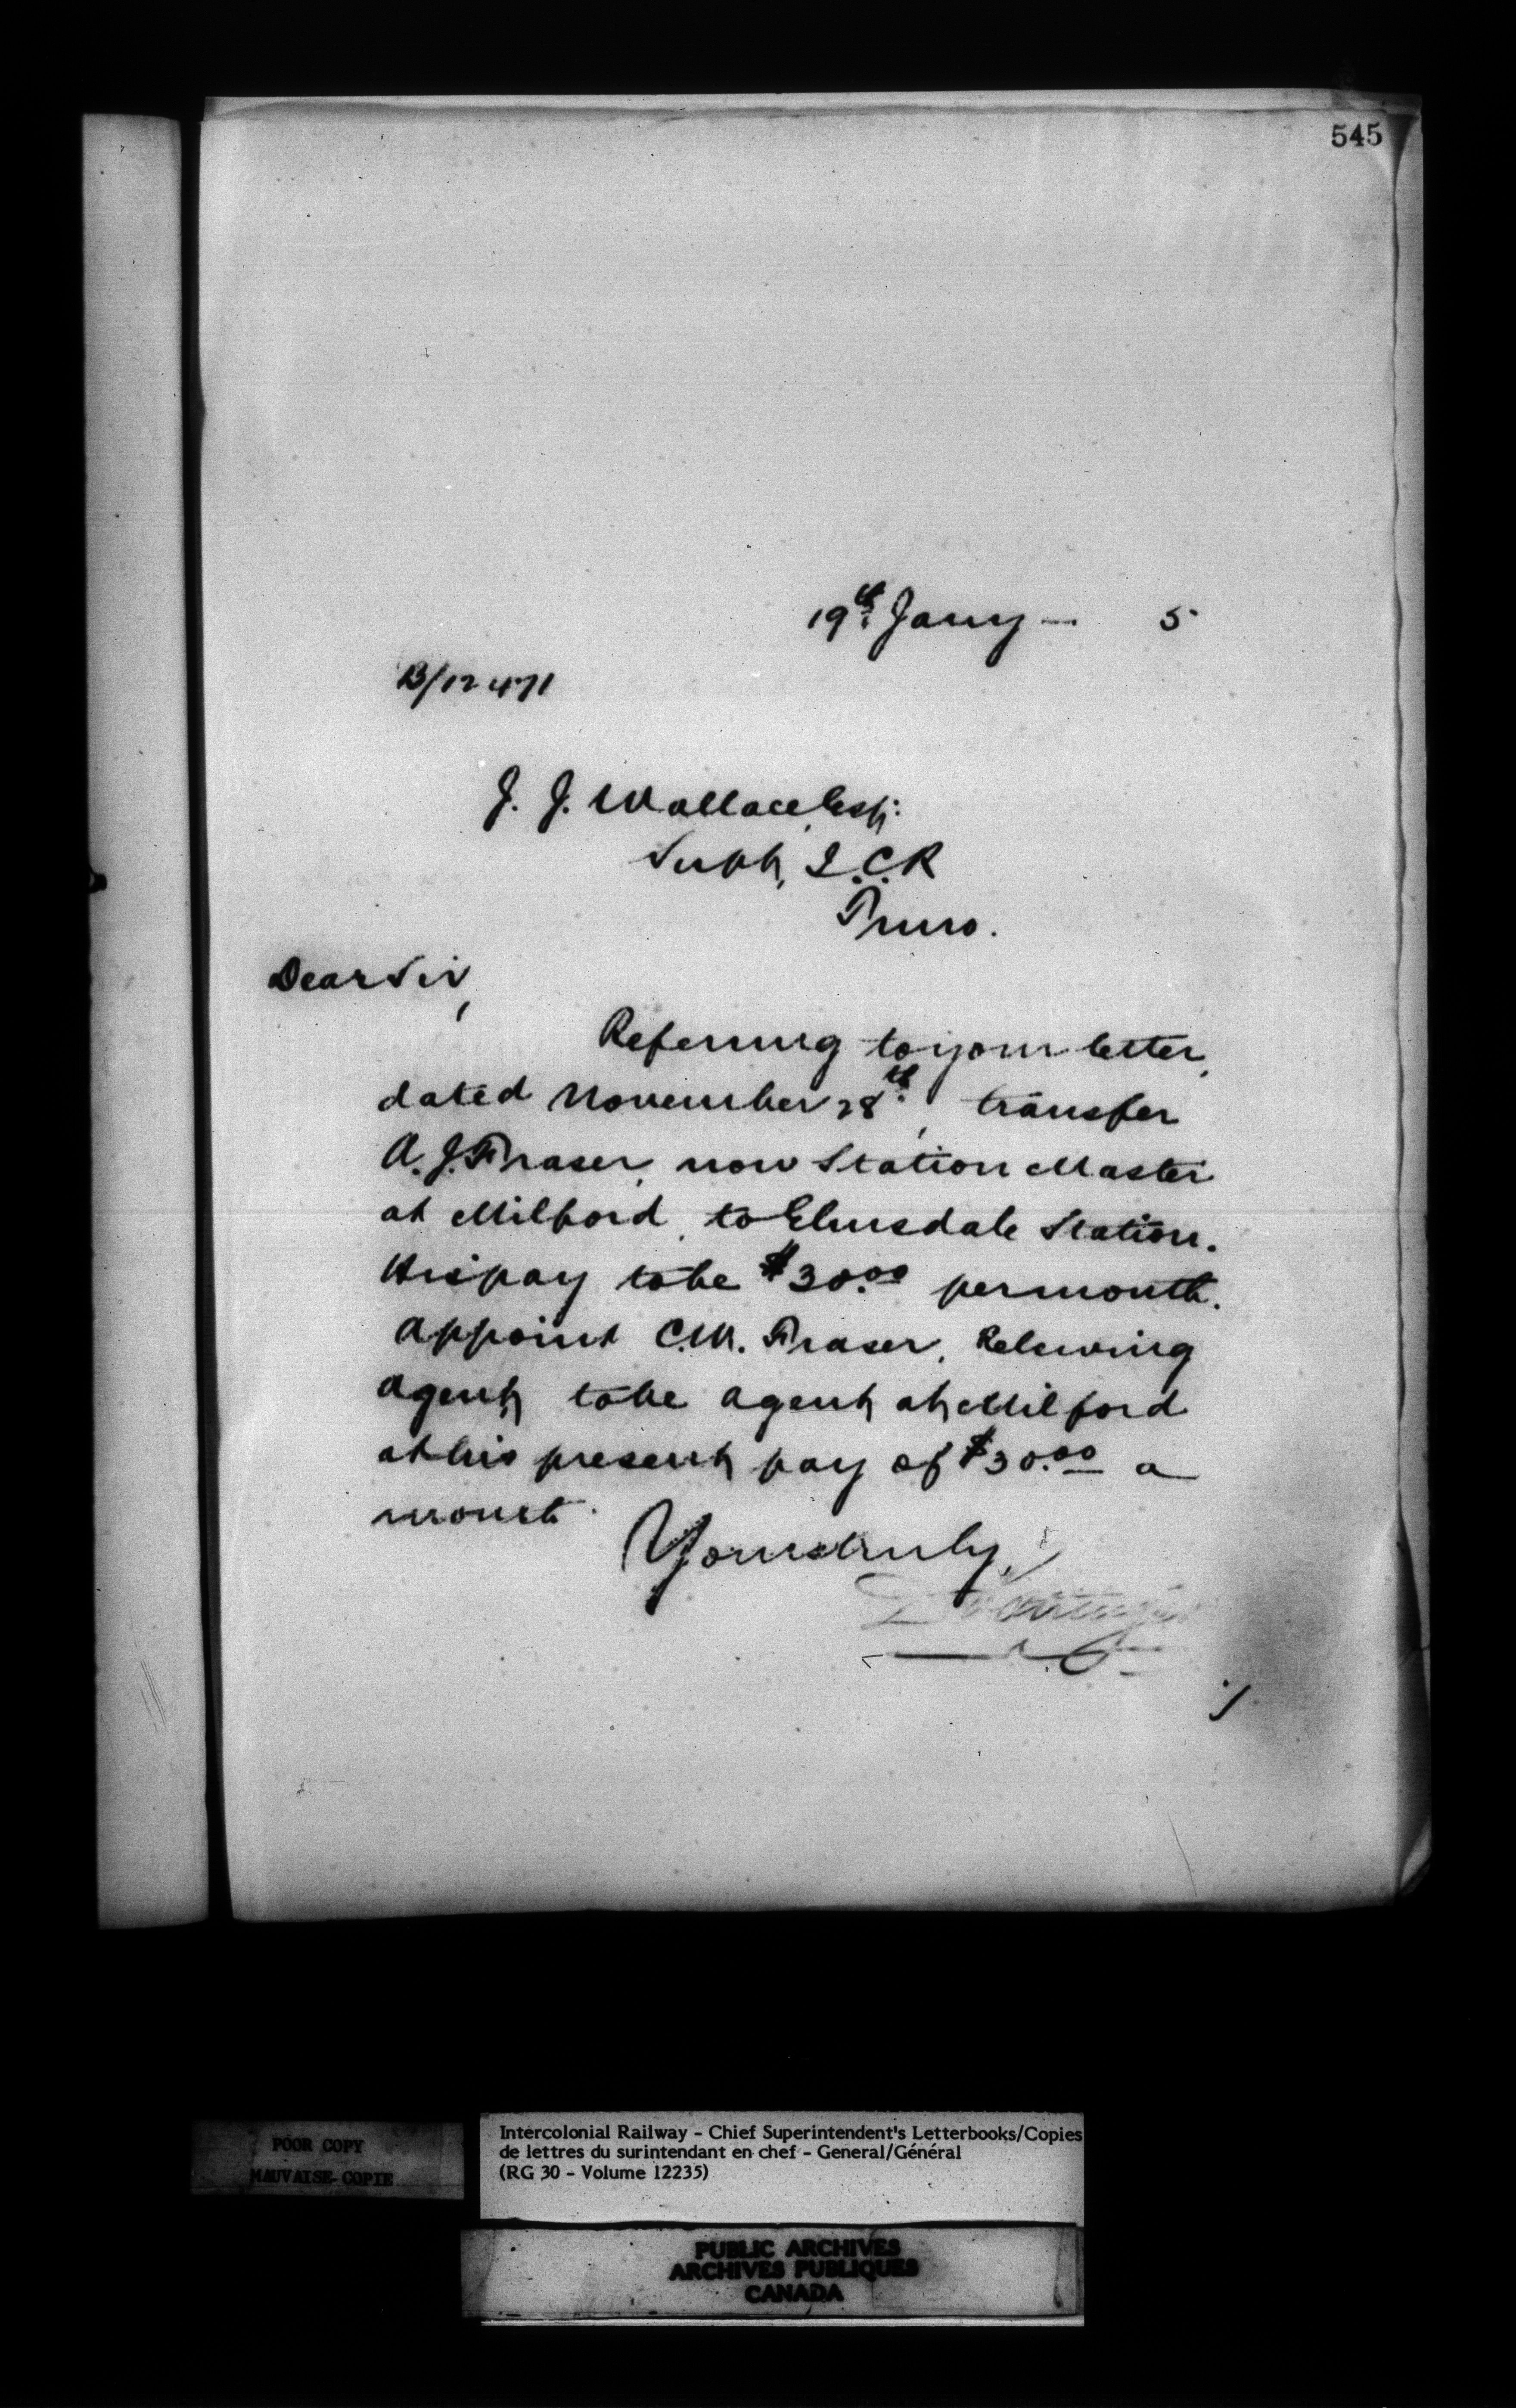 545
19th Jany — 5
B/12471
J. J. Wallace, Esq:
Supt, I.C.R
Truro.
Dear Sir,
Referring to your letter,
dated November 28th, transfer
A. J. Fraser, now Station Master
at Milford, to Elmsdale Station.
His pay to be $30.00 per month.
Appoint C.W. Fraser, Relieving
Agent, to be Agent at Milford
at his present pay of $30.00 a
month.
Yours truly,
POOR COPY
MAUVAISE COPIE
Intercolonial Railway - Chief Superintendent's Letterbooks/Copies
de lettres du surintendant en chef - General/Général
(RG 30 - Volume 12235)
PUBLIC ARCHIVES
ARCHIVES PUBLIQUES
CANADA